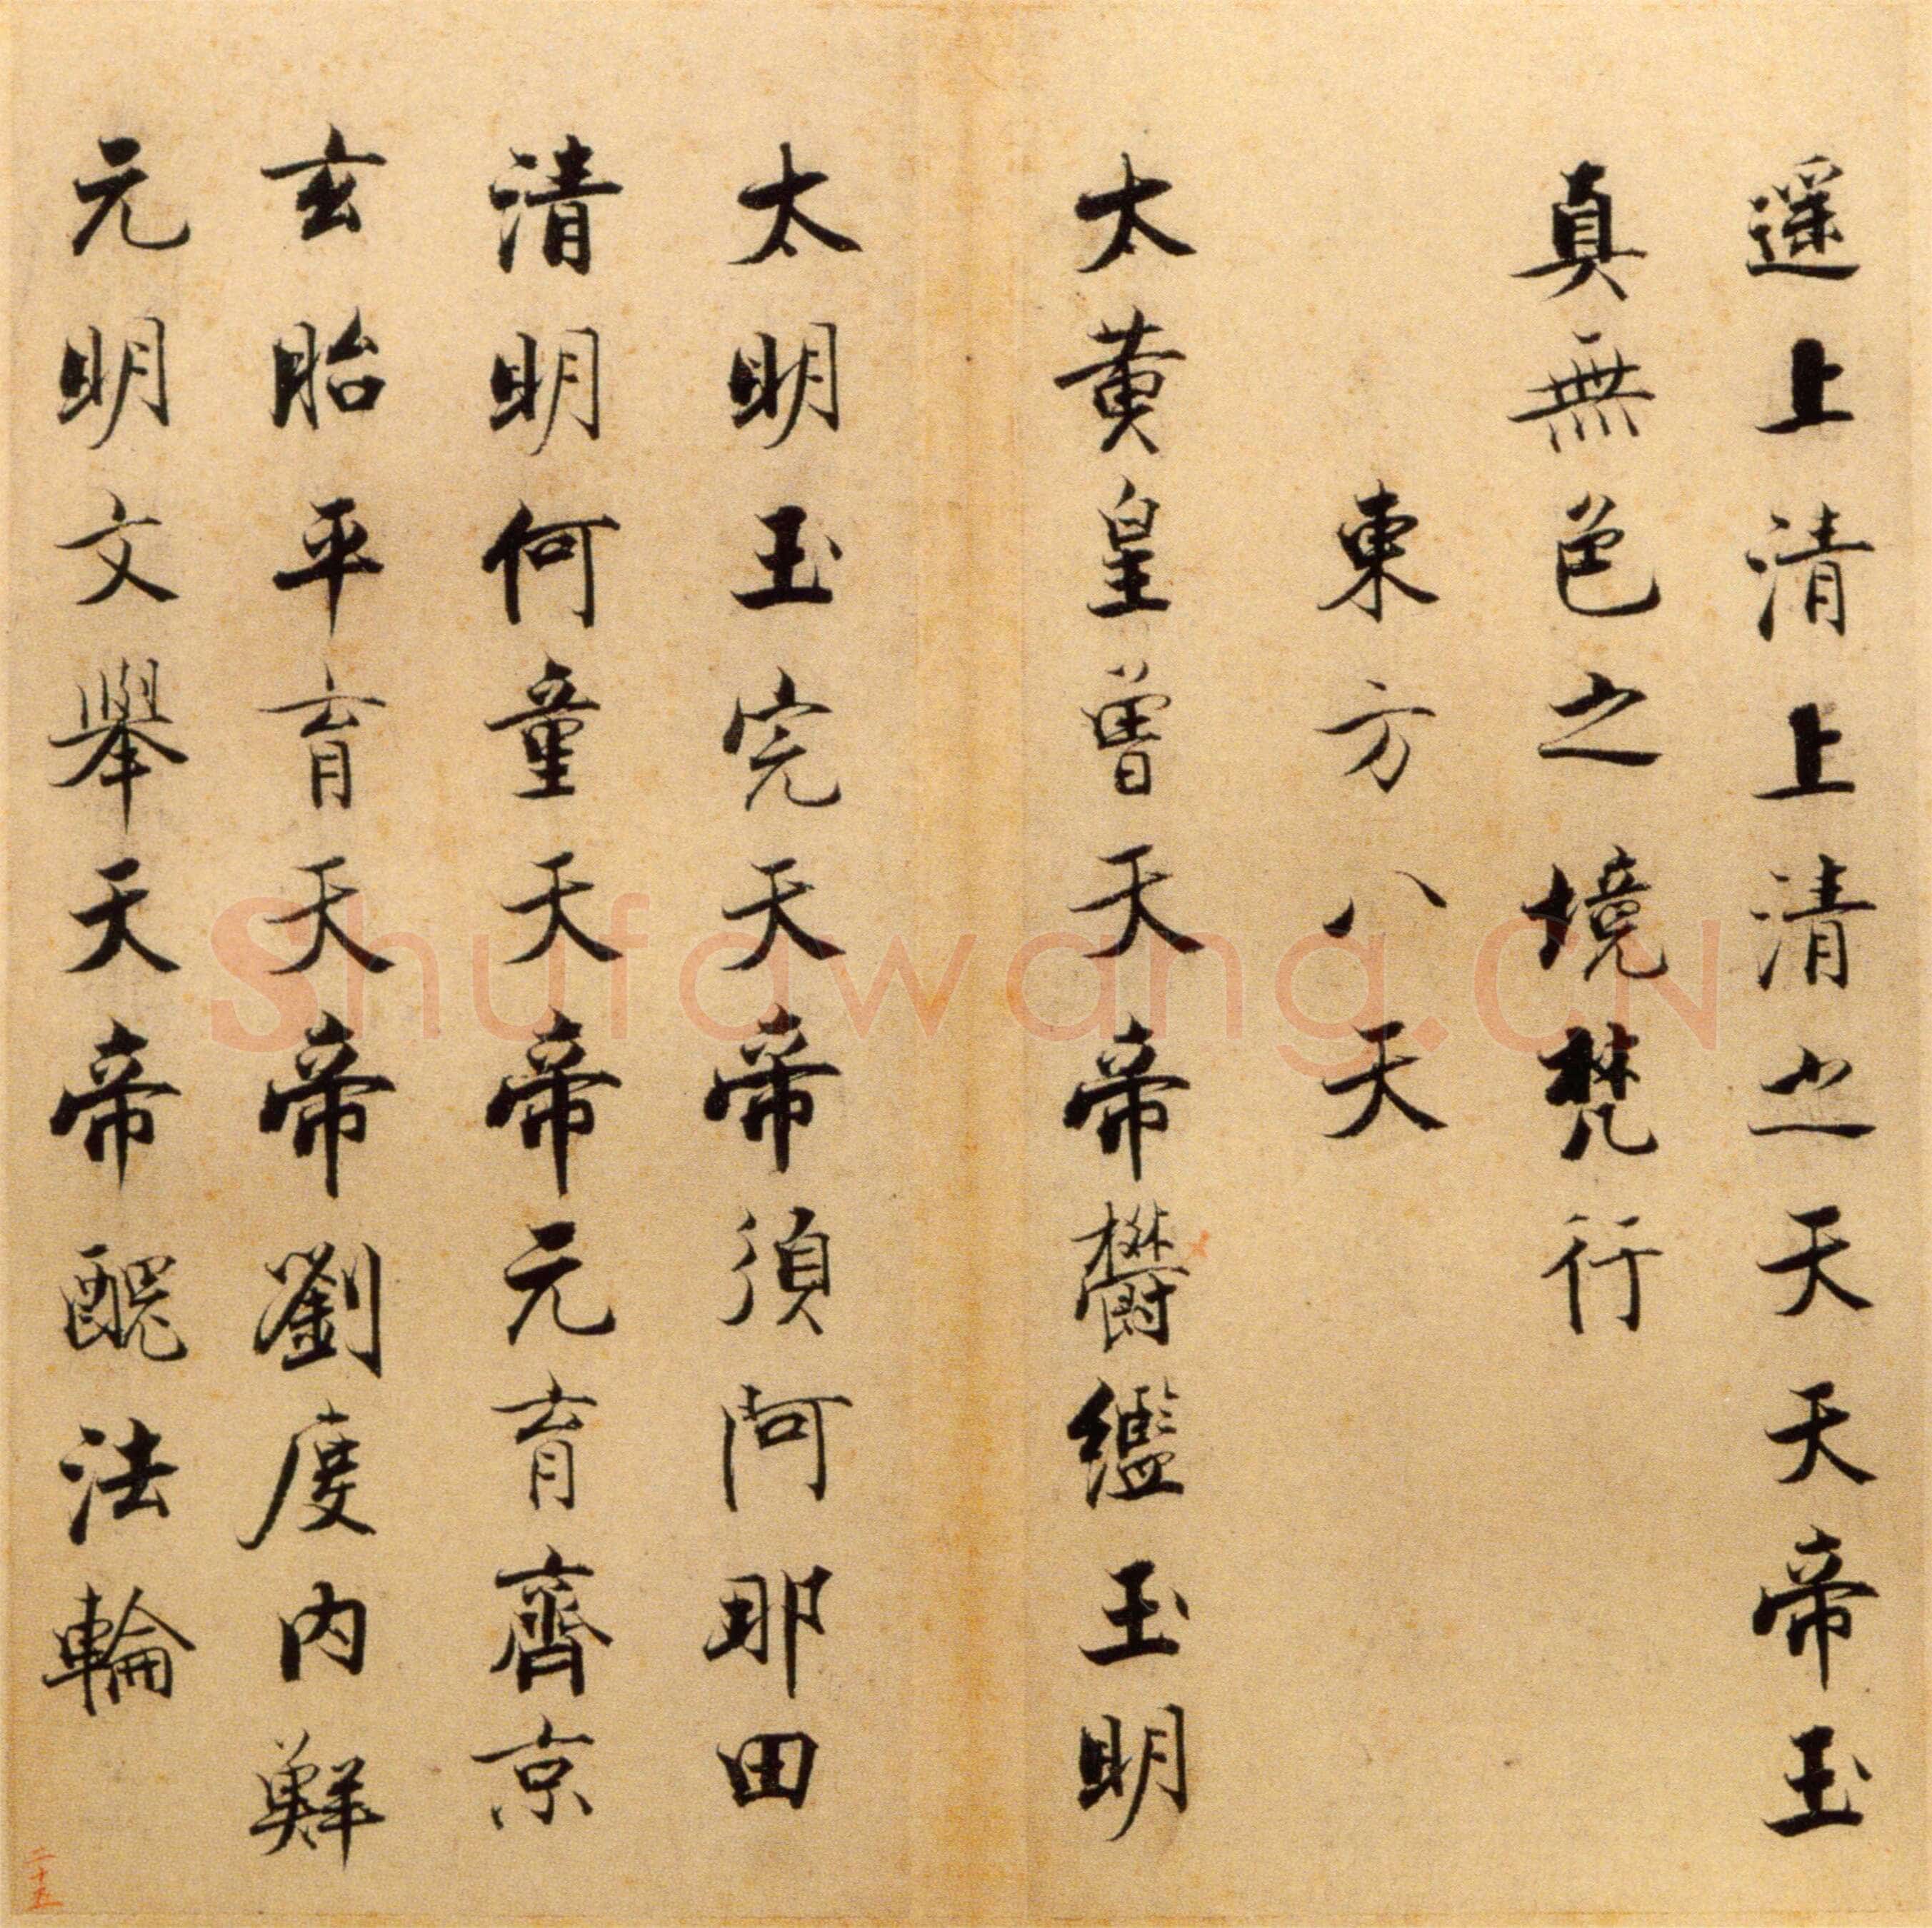 遥上清上清之天天帝玉
真無色之境梵行
東方八天
太黄皇曾天帝鬱鑑玉明
太明玉完天帝須阿那田
清明何童天帝元育齊京
玄胎平育天帝劉度内鮮
元明文舉天帝醜法輪
二十五
Shufawang.CN